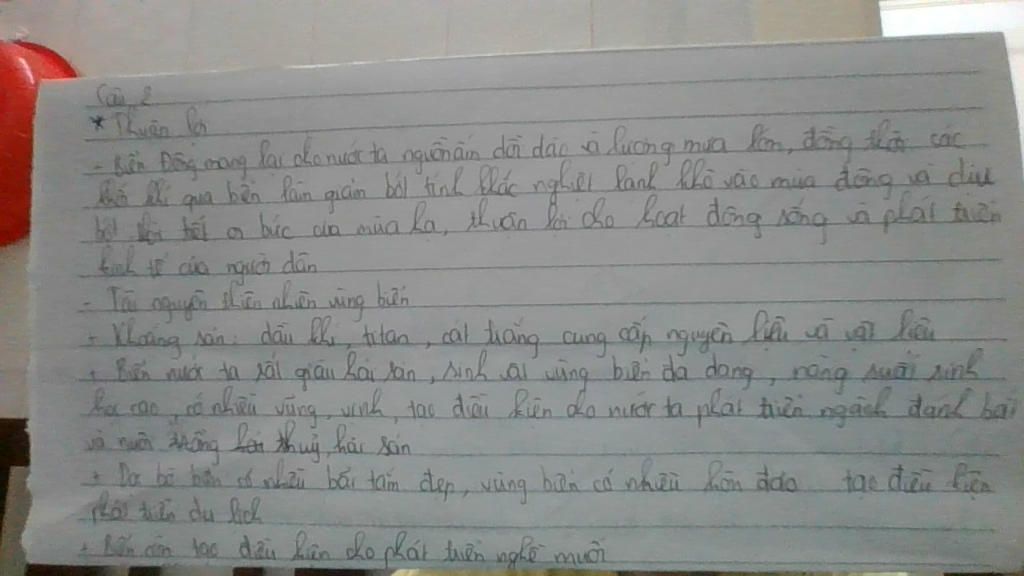 Câu 2
* Thuận lợi
- Biển Đông mang lại cho nước ta nguồn ẩm dồi dào và lượng mưa lớn, đồng thời các
khối khí qua biển làm giảm bớt tính khắc nghiệt lạnh khô vào mùa đông và dịu
bớt thời tiết o bức của mùa hạ, thuận lợi cho hoạt động sống và phát triển
kinh tế của người dân
- Tài nguyên thiên nhiên vùng biển
+ Khoáng sản: dầu khí, titan, cát trắng cung cấp nguyên liệu và vật liệu
+ Biển nước ta rất giàu hải sản, sinh vật vùng biển đa dạng, năng suất sinh
học cao, có nhiều vũng, vịnh, tạo điều kiện cho nước ta phát triển ngành đánh bắt
và nuôi trồng thuỷ, hải sản
+ Dọc bờ biển có nhiều bãi tắm đẹp, vùng biển có nhiều hòn đảo tạo điều kiện
phát triển du lịch
+ Biển còn tạo điều kiện cho phát triển nghề muối